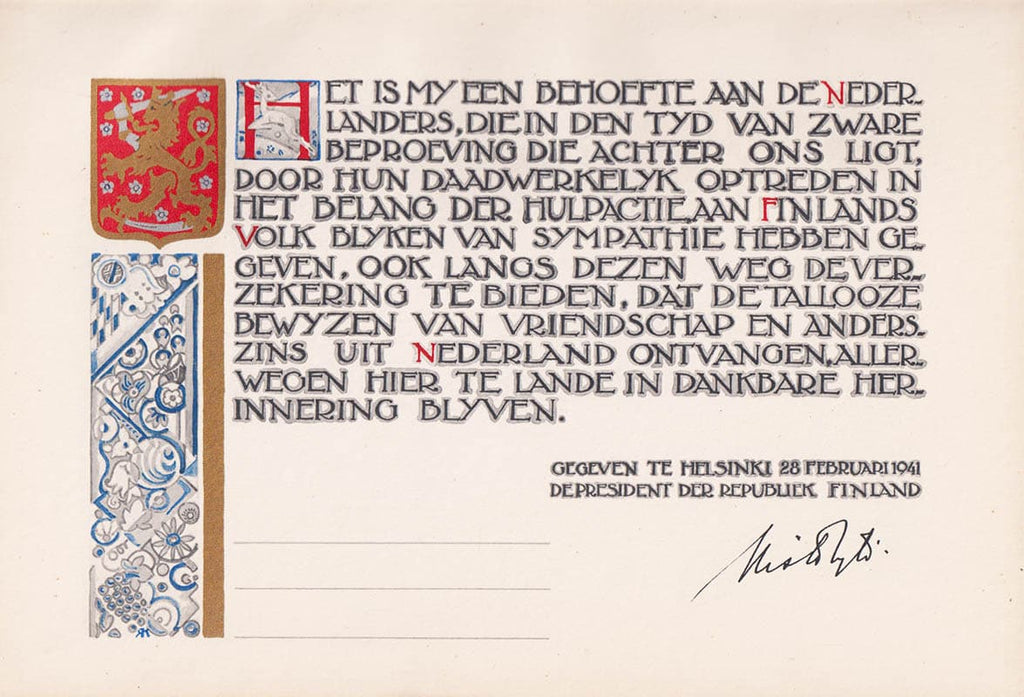 HET IS MY EEN BEHOEFTE AAN DE NEDER-
LANDERS, DIE IN DEN TYD VAN ZWARE
BEPROEVING DIE ACHTER ONS LIGT,
DOOR HUN DAADWERKELYK OPTREDEN IN
HET BELANG DER HULPACTIE, AAN FINLANDS
VOLK BLYKEN VAN SYMPATHIE HEBBEN GE-
GEVEN, OOK LANGS DEZEN WEG DE VER-
ZEKERING TE BIEDEN, DAT DE TALLOOZE
BEWYZEN VAN VRIENDSCHAP EN ANDERS-
ZINS UIT NEDERLAND ONTVANGEN, ALLER-
WEGEN HIER TE LANDE IN DANKBARE HER-
INNERING BLYVEN.
GEGEVEN TE HELSINKI 28 FEBRUARI 1941
DE PRESIDENT DER REPUBLIEK FINLAND
Risto Ryti.